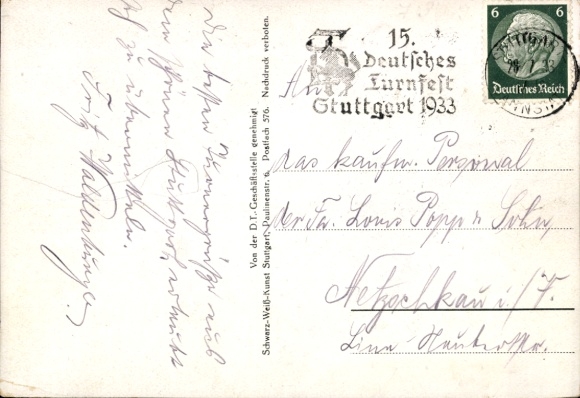 6 6
Deutsches Reich
15.
Deutsches
Turnfest
Stuttgart 1933
An
das kaufm. Personal
der Fa. Louis Popp & Sohn,
Netzschkau i./V.
Die besten Turnergrüße aus
dem schönen Stuttgart erlaubt
sich zu übermitteln.
Fritz Waldenburger
Von der D.T. Geschäftsstelle genehmigt
Schwarz-Weiß-Kunst Stuttgart, Paulinenstr. 6. Postfach 576. Nachdruck verboten.